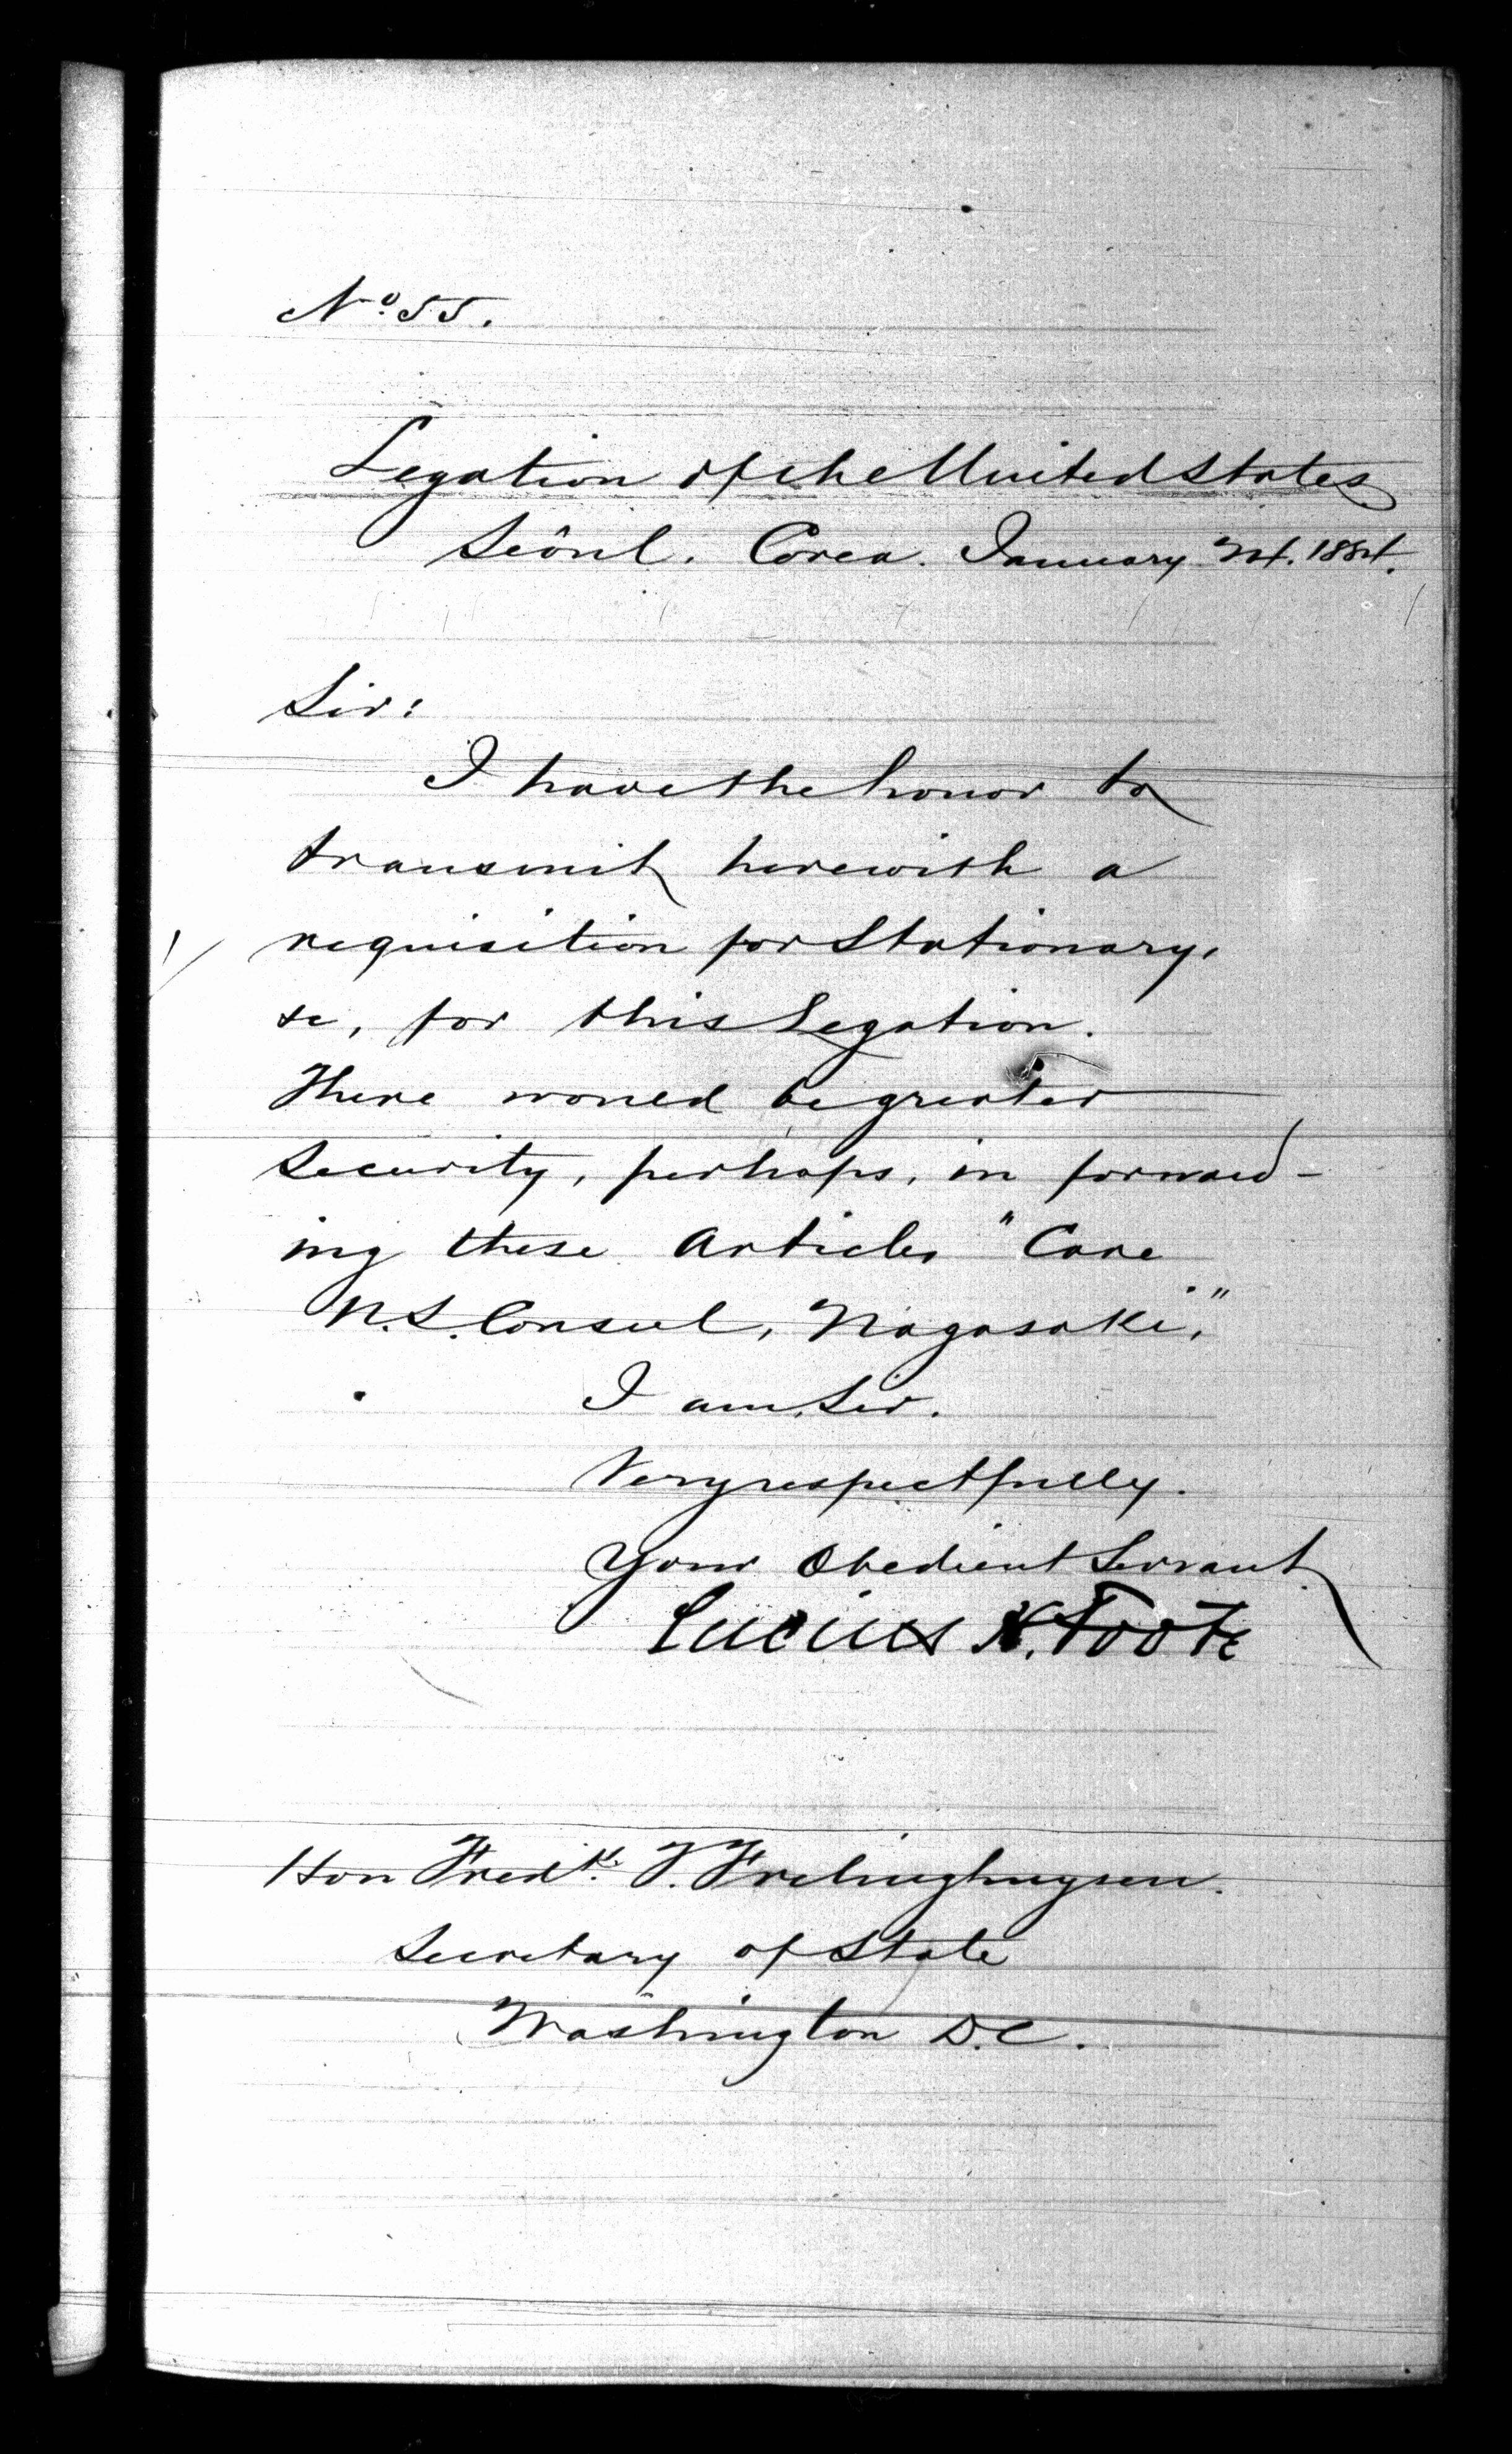 Nº 55.
Legation of the United States
Seôul. Corea. January 1884.
Sir:
I have the honor to
transmit herewith a
requisition for Stationary,
&c, for this Legation.
There would be greater
Security, perhaps, in forward-
ing these Articles "Care
U.S. Consul, Nagasaki,"
I am, Sir.
Very respectfully.
Your Obedient Servant
Lucius H. Foote
Hon Fredk. T. Frelinghuysen.
Secretary of State
Washington D.C.